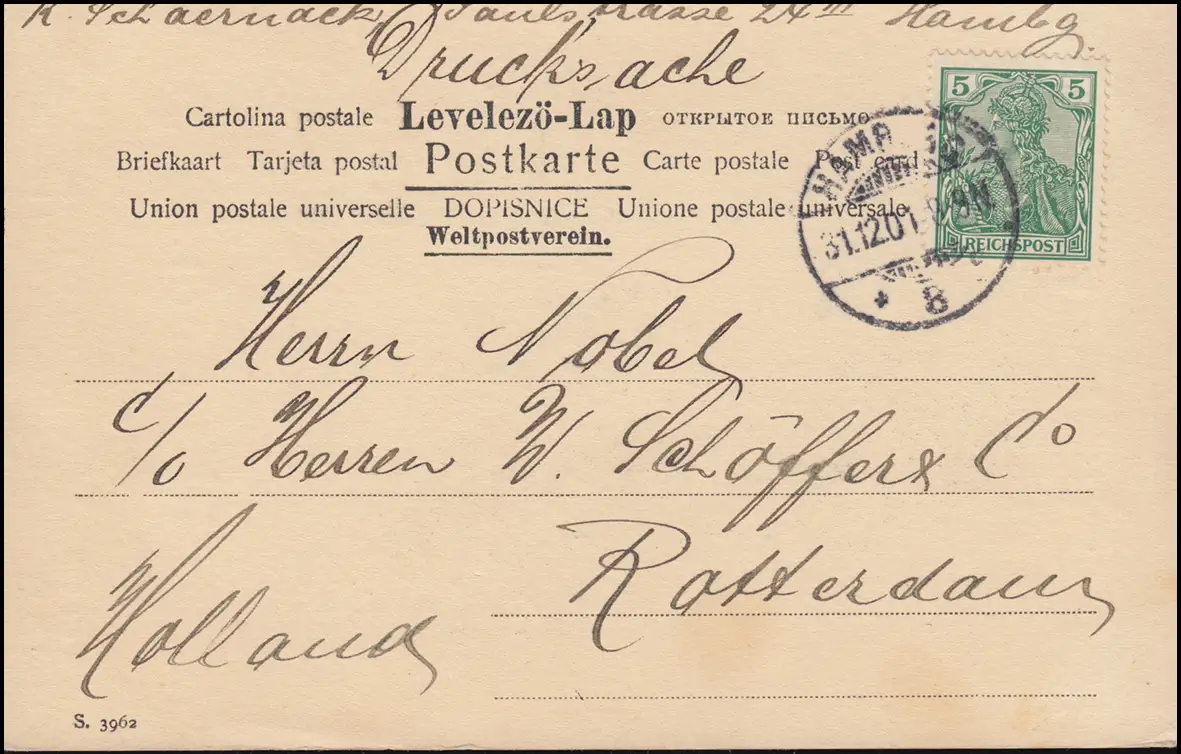 Paulstrasse 24III Hambg.
Drucksache
Cartolina postale Levelezö-Lap ОТКРЫТОЕ ПИСЬМО
Briefkaart Tarjeta postal Postkarte Carte postale Post card
Union postale universelle DOPISNICE Unione postale universale
Weltpostverein.
5 5
REICHSPOST
HAMBURG
31.12.01. 8-9N
* 8
Herrn Nobel
c/o Herren W. Schöffer & Co
Rotterdam
Holland
S. 3962